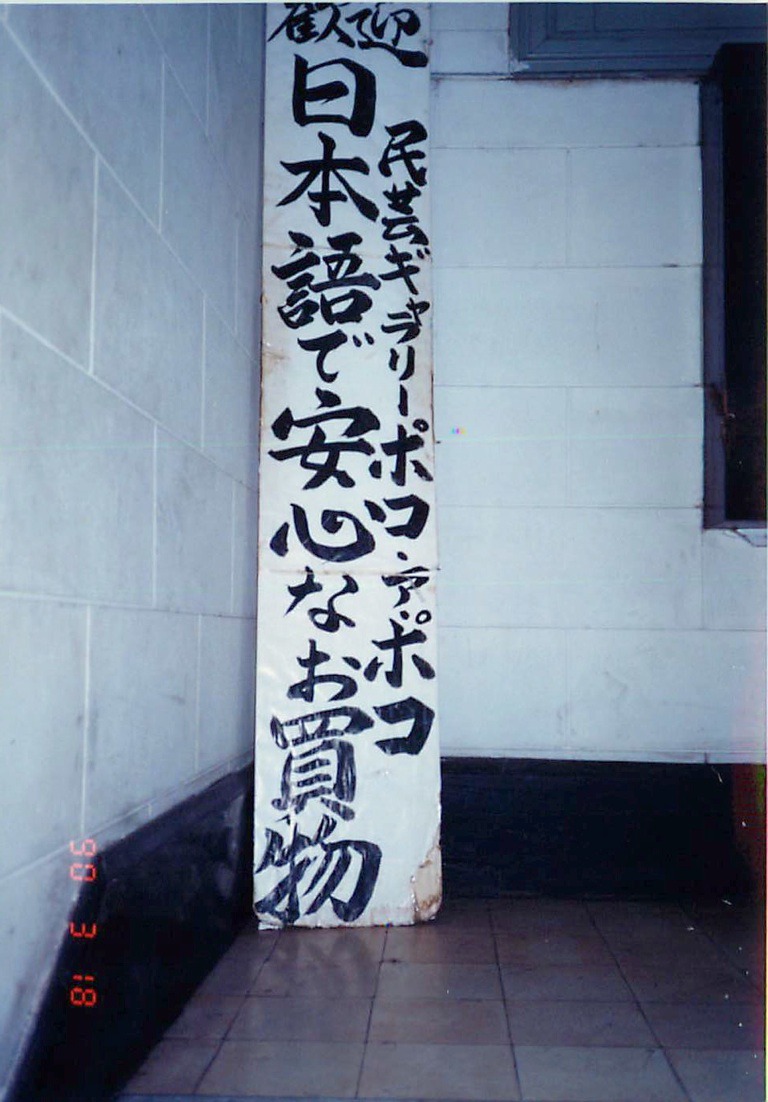 歓迎
民芸ギャラリーポコ・ア・ポコ
日本語で安心なお買物
'90 3 18